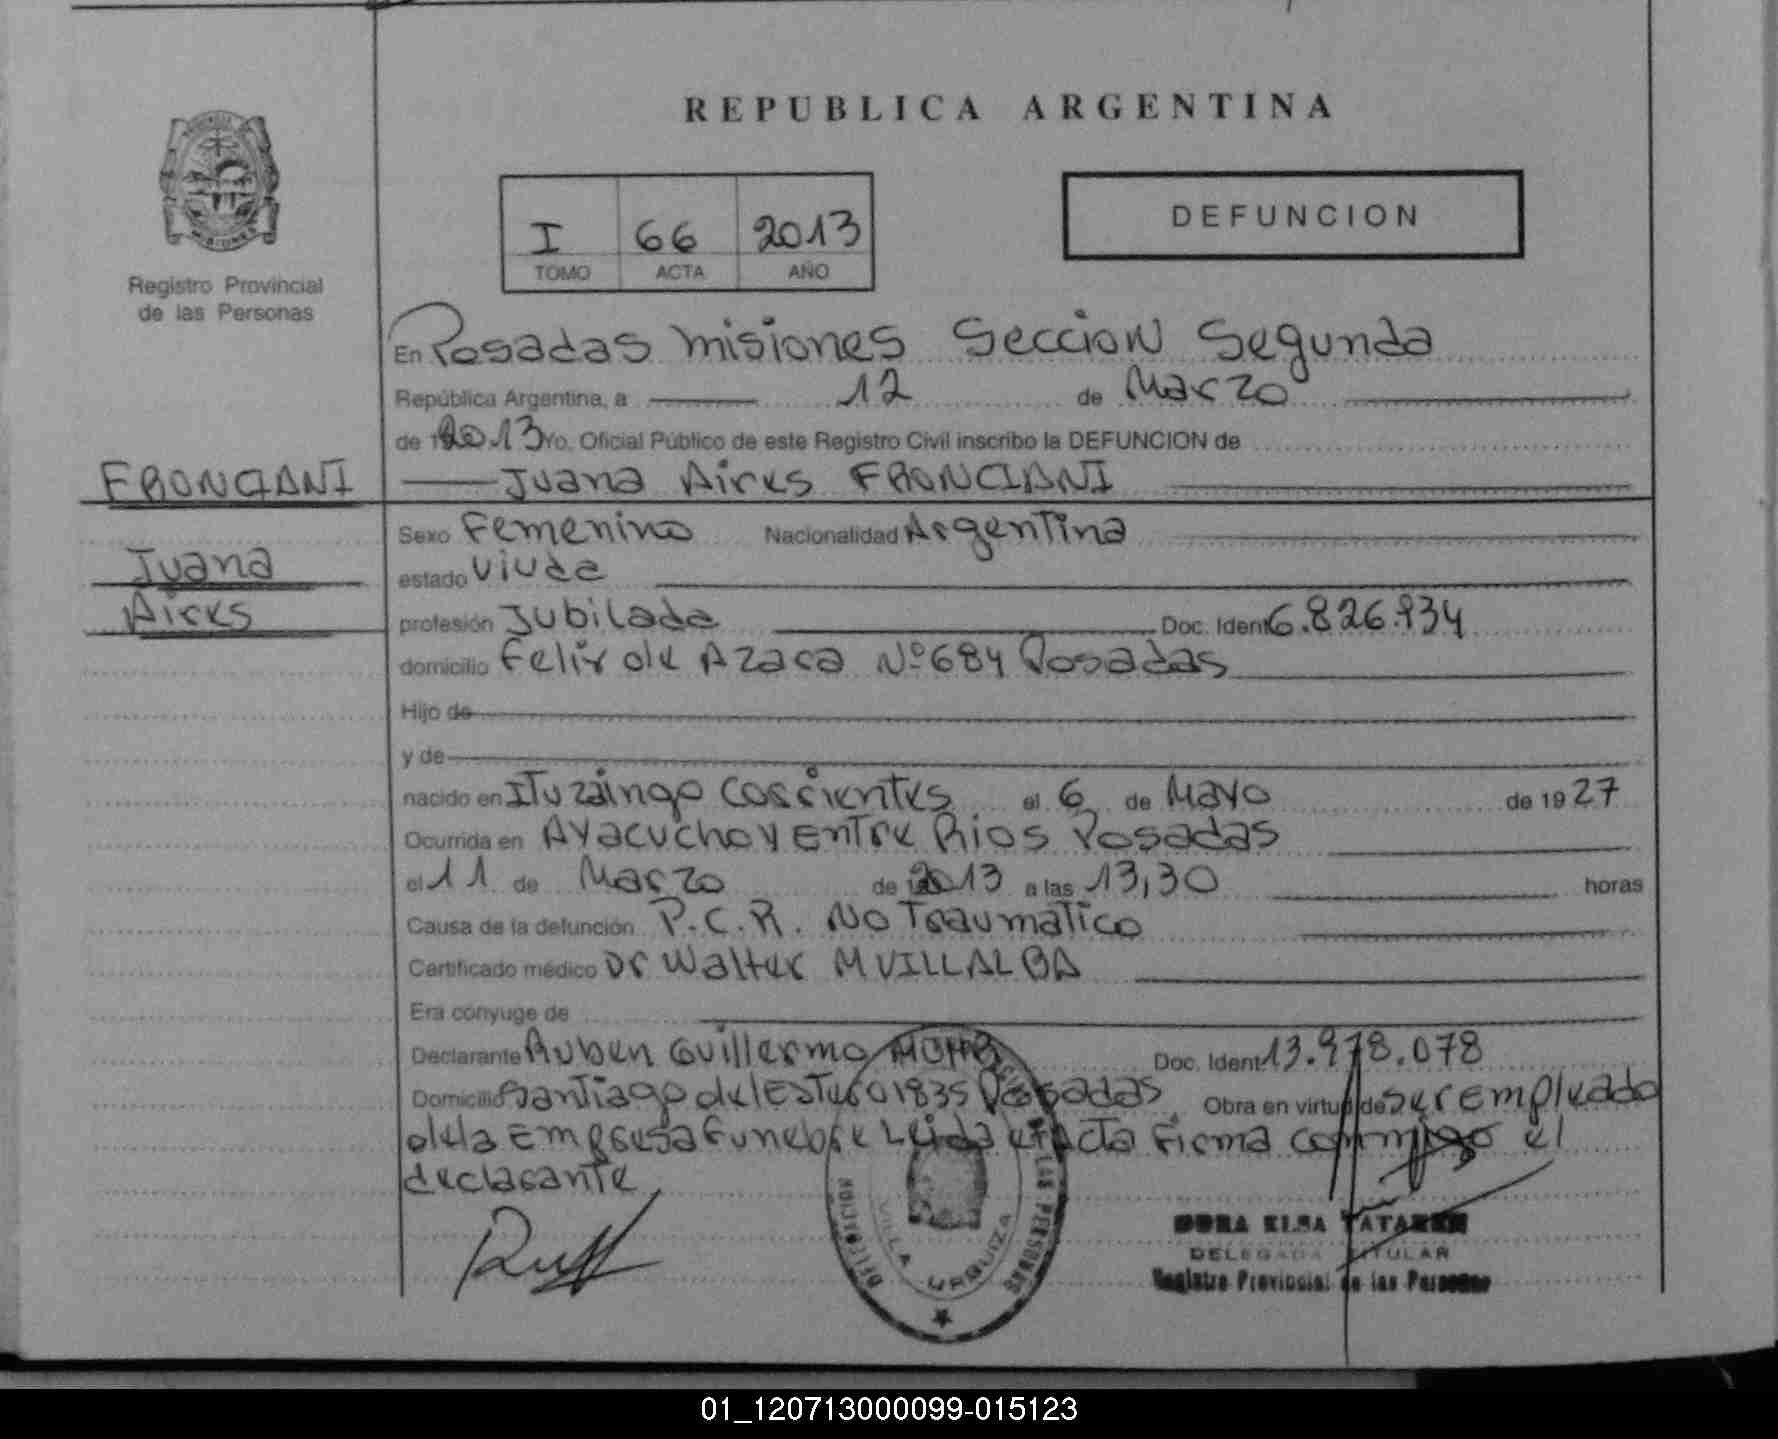 REPUBLICA ARGENTINA
MISIONES
Registro Provincial
de las Personas
I 66 2013
TOMO ACTA AÑO
DEFUNCION
En Posadas Misiones Seccion Segunda
República Argentina, a 12 de Marzo
de 2013 Yo. Oficial Público de este Registro Civil inscribo la DEFUNCION de
Juana Aires FRONCIANI
FRONCIANI
Juana
Aires
Sexo Femenino Nacionalidad Argentina
estado Viuda
profesión Jubilada Doc. Ident 6.826.934
domicilio Felix de Azara Nº 684 Posadas
Hijo de
y de
nacido en Ituzaingo Corrientes el 6 de Mayo de 1927
Ocurrida en Ayacucho y Entre Rios Posadas
el 11 de Marzo de 2013 a las 13,30 horas
Causa de la defunción P.C.R. No Traumatico
Certificado médico Dr Walter M VILLALBA
Era cónyuge de
Declarante Ruben Guillermo Doc. Ident 13.978.078
Domicilio Santiago del Estero 1835 Posadas Obra en virtud de ser empleado
de la Empresa Funebre Leida el Acta Firma conmigo el
declarante
DELEGACION LAS PERSONAS
VILLA URQUIZA
ELSA
DELEGADA TITULAR
Registro Provincial de las Personas
01_120713000099-015123